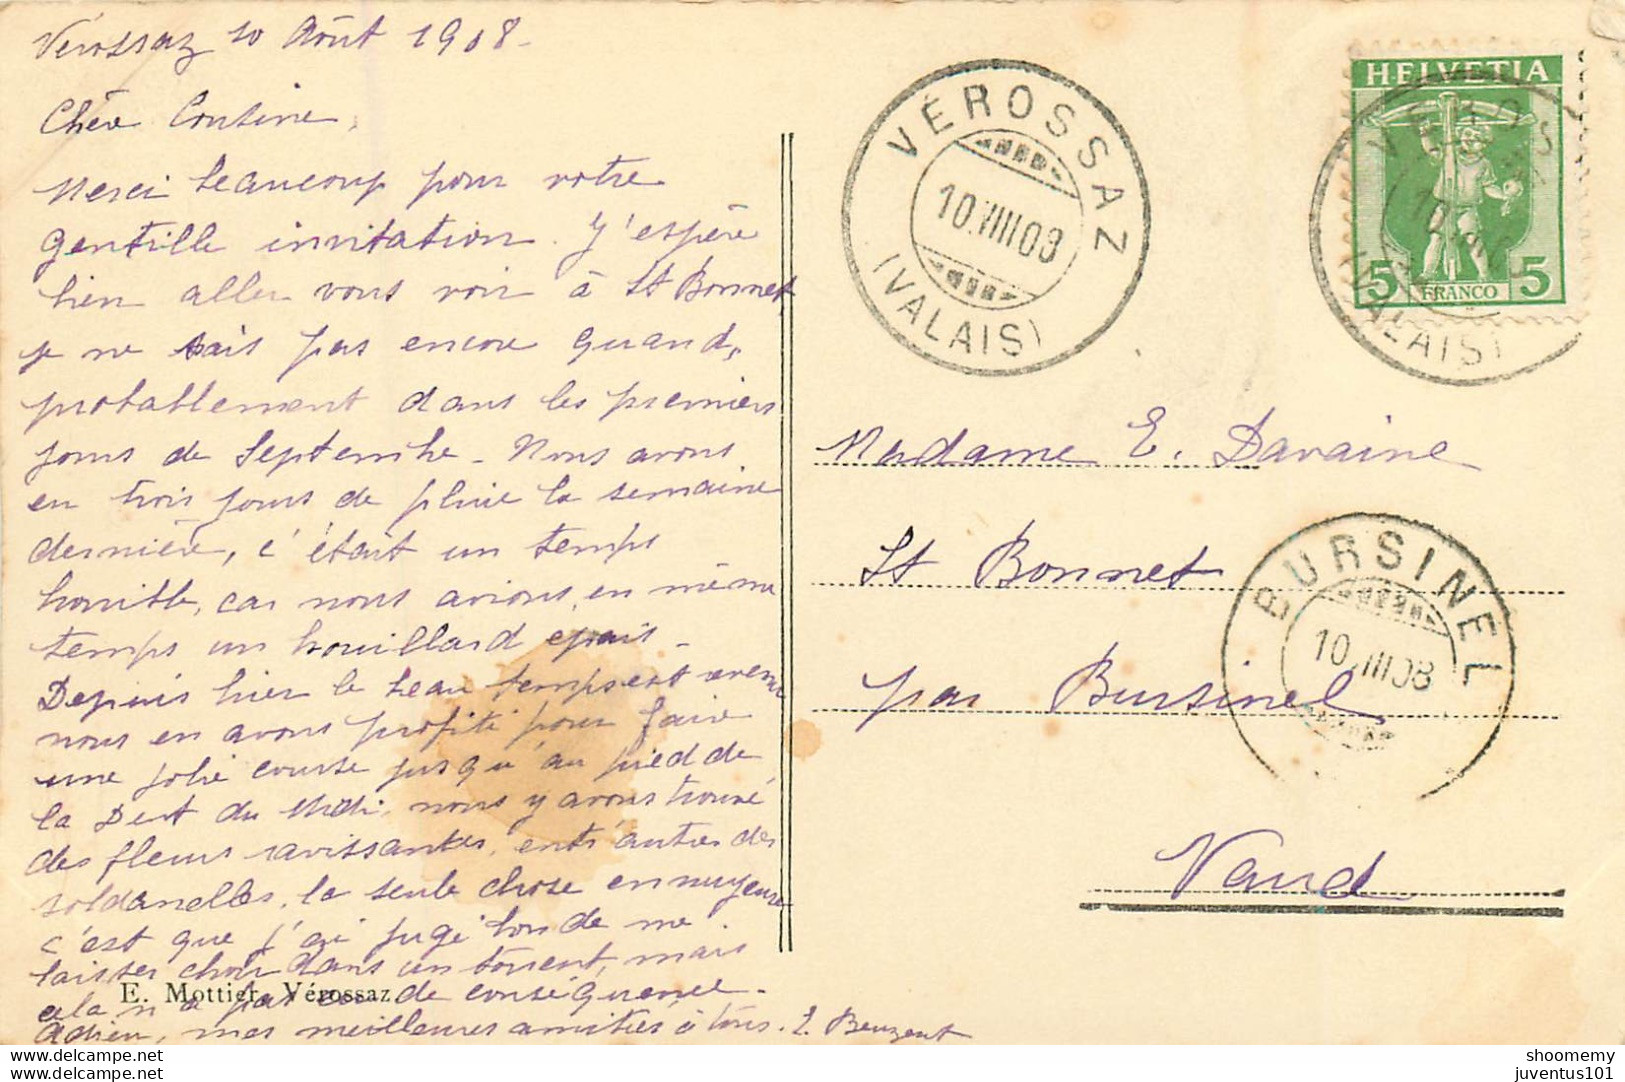 Vérossaz 10 Août 1908.
Chère Cousine,
Merci beaucoup pour votre
gentille invitation. J'espère
bien aller vous voir à St Bonnet,
je ne sais pas encore quand,
probablement dans les premiers
jours de Septembre. Nous avons
eu trois jours de pluie la semaine
dernière, c'était un temps
horrible, car nous avions en même
temps un brouillard épais.
Depuis hier le beau temps est revenu
nous en avons profité pour faire
une jolie course jusqu'au pied de
la Dent du Midi, nous y avons trouvé
des fleurs ravissantes, entr'autres des
soldanelles, la seule chose ennuyeuse
c'est que j'ai jugé bon de me
laisser choir dans un torrent, mais
cela n'a pas eu de conséquence.
Adieu, mes meilleures amitiés à tous.
E. Mottier, Vérossaz.
VÉROSSAZ
10.VIII.08
(VALAIS)
HELVETIA
5 FRANCO 5
VÉROSSAZ
10.VIII.08
(VALAIS)
Madame E. Davaine
St Bonnet
par Bursinel
Vaud
BURSINEL
10.VIII.08
shoomemy
juventus101